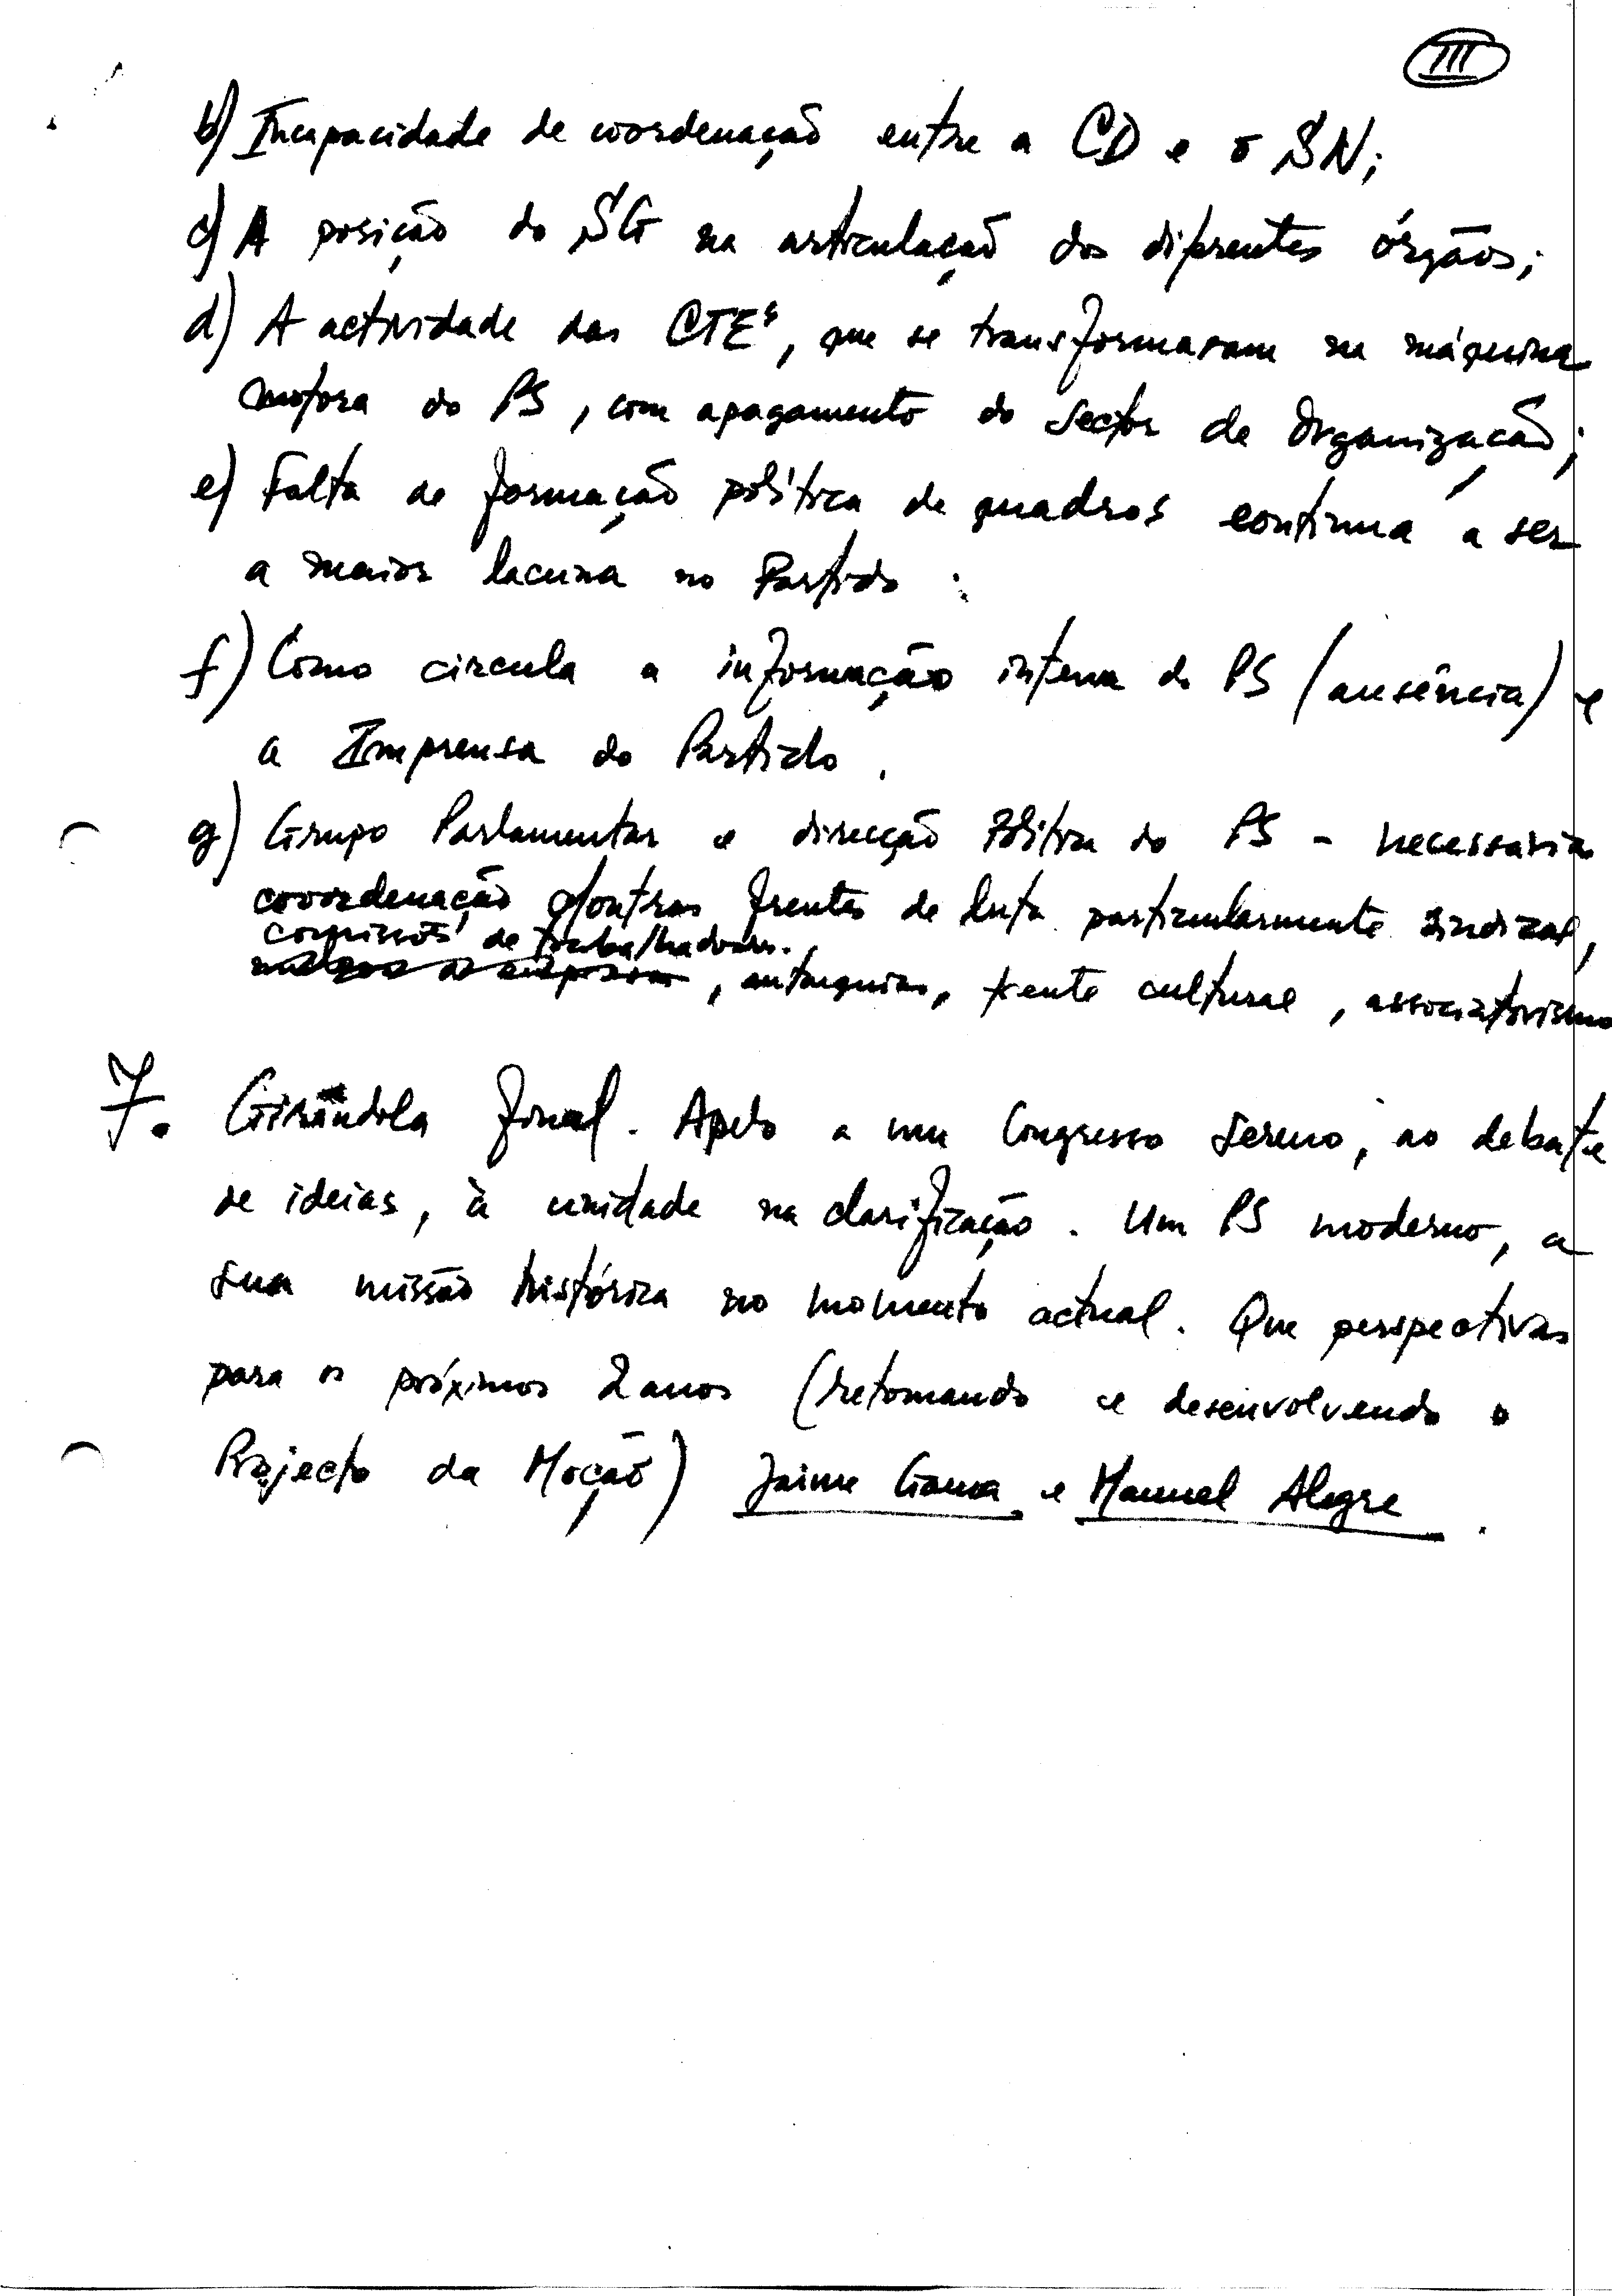 III
b) Incapacidade de coordenação entre a CD e o SN;
c) A posição do SG na articulação dos diferentes órgãos;
d) A actividade das CTEs, que se transformaram na máquina
motora do PS, com apagamento do Sector de Organização;
e) Falta de formação política de quadros continua a ser
a maior lacuna no Partido :
f) Como circula a informação interna do PS (ausência) e
a Imprensa do Partido.
g) Grupo Parlamentar e direcção Política do PS - necessária
coordenação c/outras frentes de luta particularmente sindical,
comissões de trabalhadores.
, autarquias, frente cultural, associativismo
7. Girândola final. Apelo a um Congresso sereno, ao debate
de ideias, à unidade na clarificação. Um PS moderno, a
sua missão histórica no momento actual. Que perspectivas
para os próximos 2 anos (retomando e desenvolvendo o
Projecto da Moção) Jaime Gama e Manuel Alegre.